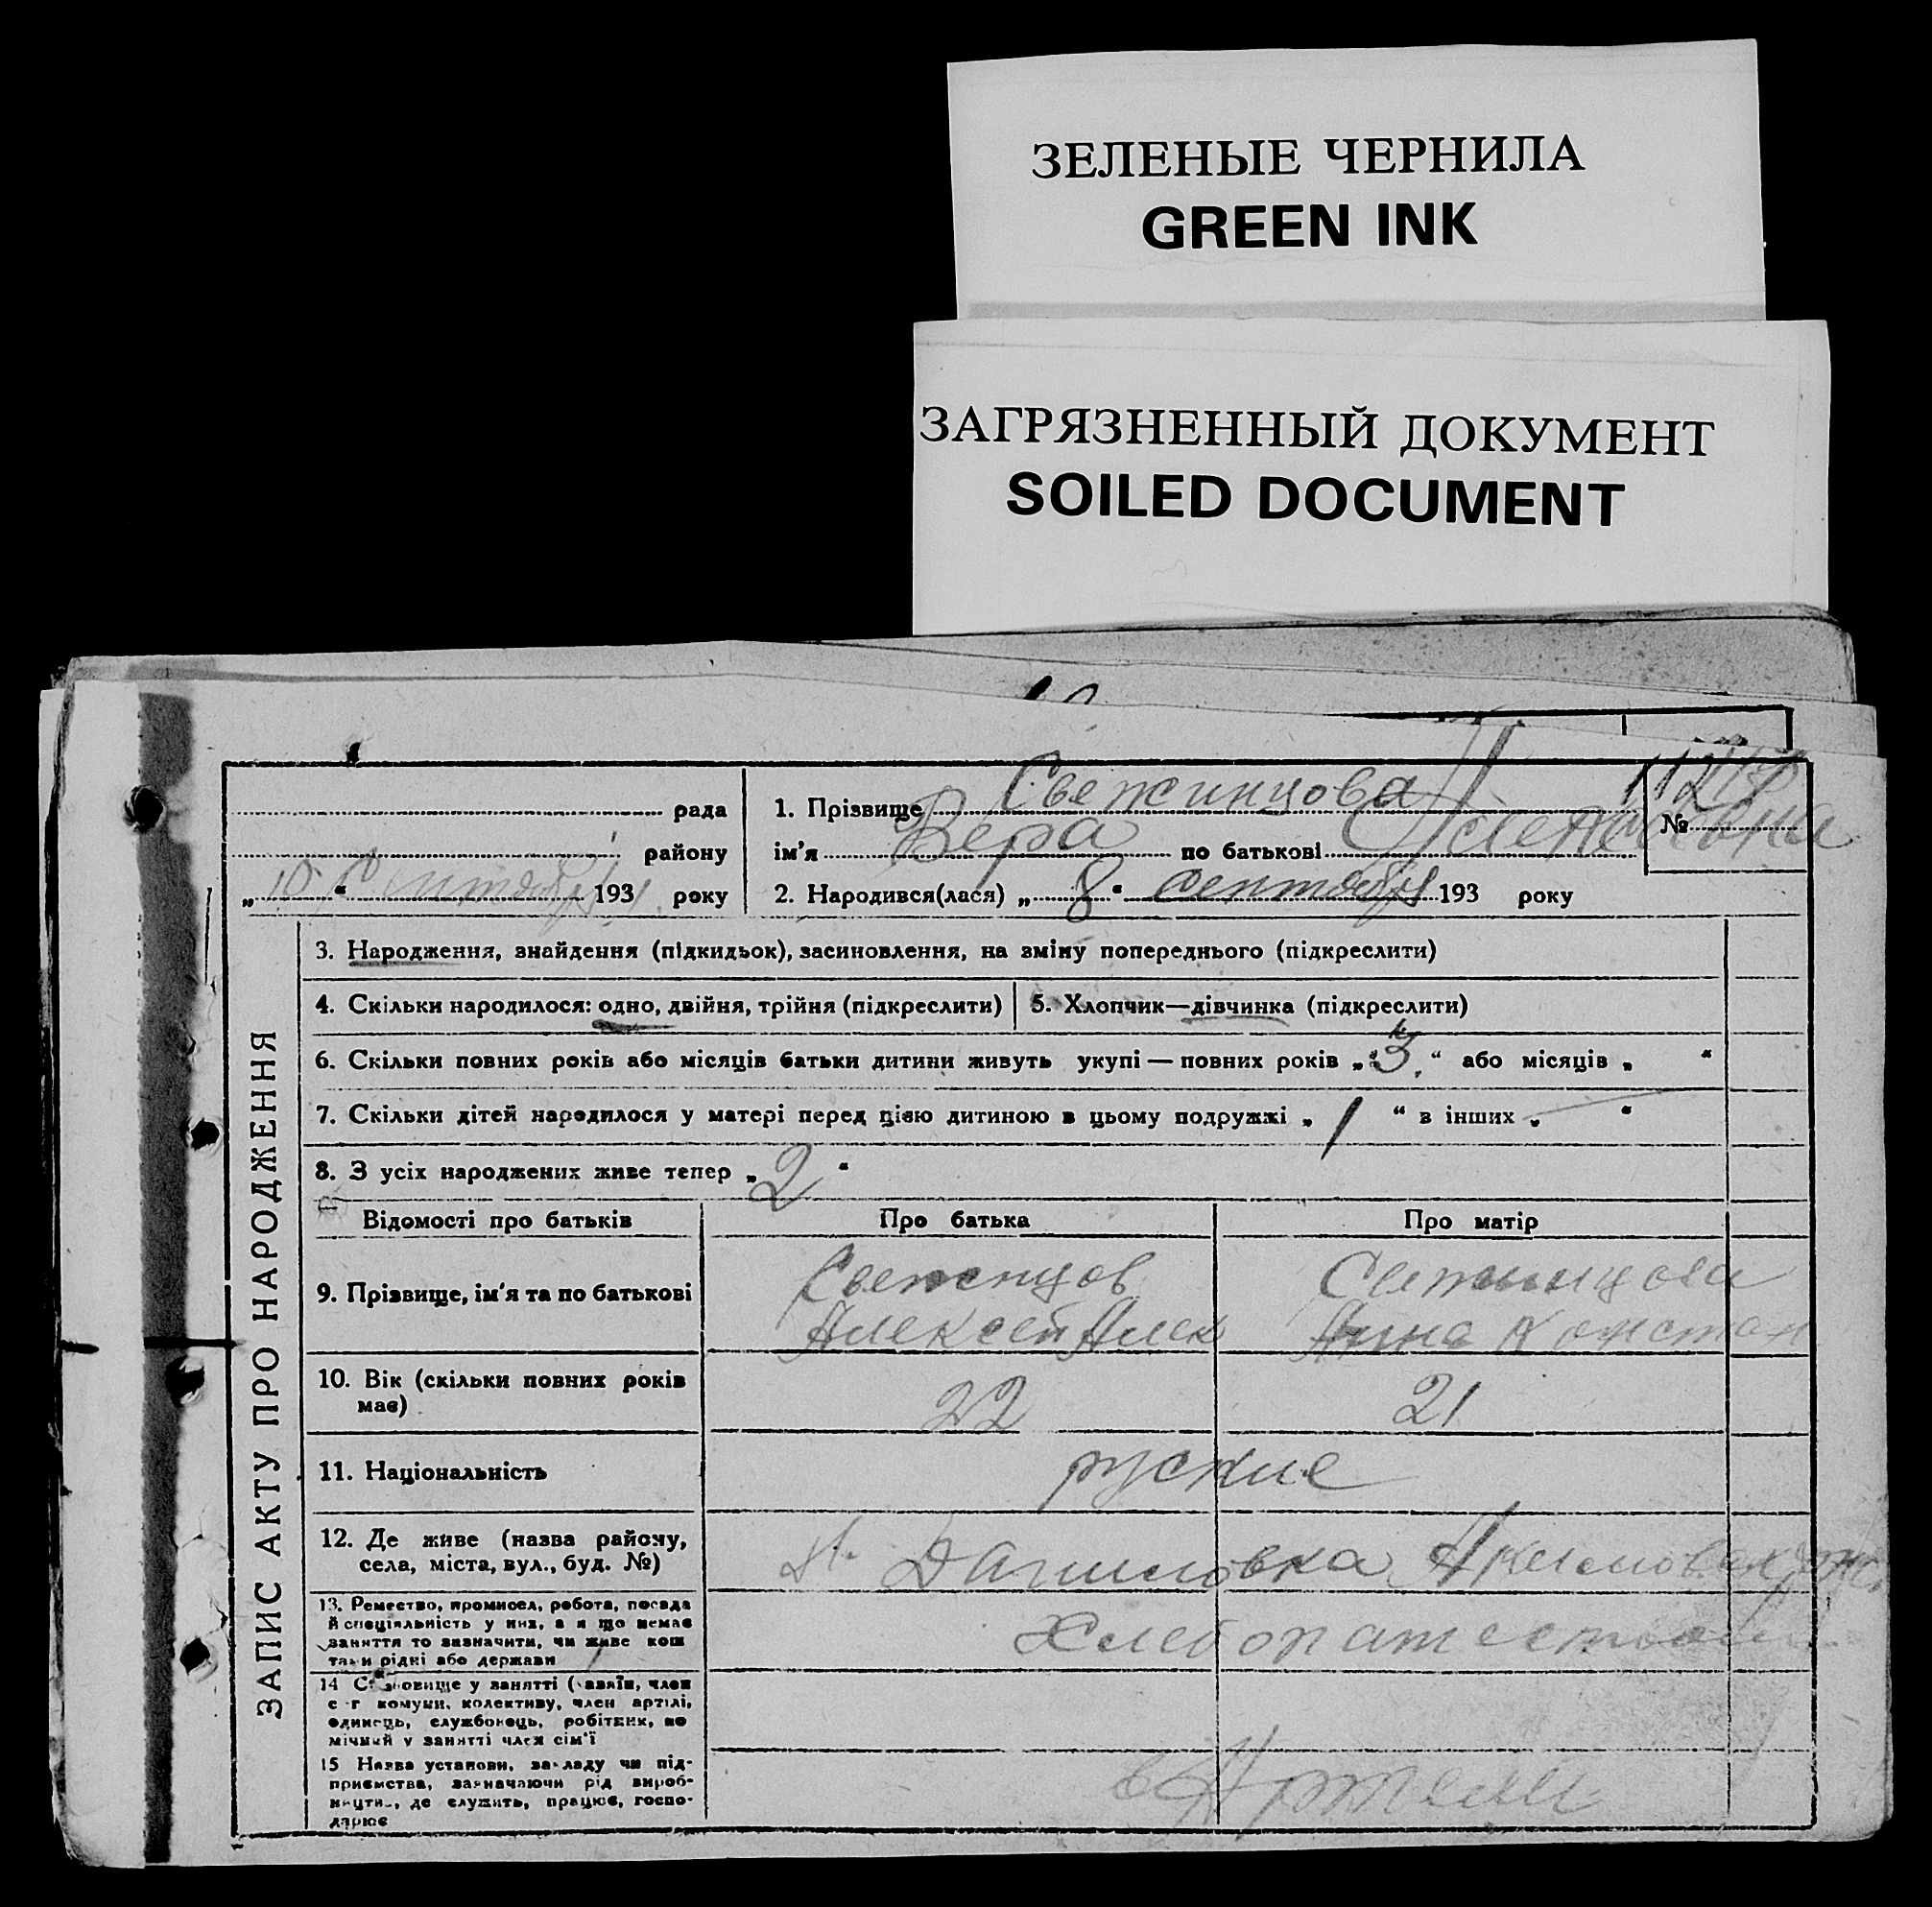 ЗЕЛЕНЫЕ ЧЕРНИЛА
GREEN INK
ЗАГРЯЗНЕННЫЙ ДОКУМЕНТ
SOILED DOCUMENT
ЗАПИС АКТУ ПРО НАРОДЖЕННЯ
рада
району
„10“ Сентября 193 року
1. Прізвище Свежинцова
ім'я Вера по батькові Алексеевна
№
2. Народився(лася) „8“ Сентября 193 року
3. Народження, знайдення (підкидьок), засиновлення, на зміну попереднього (підкреслити)
4. Скільки народилося: одно, двійня, трійня (підкреслити)
5. Хлопчик—дівчинка (підкреслити)
6. Скільки повних років або місяців батьки дитини живуть укупі — повних років „3“ або місяців „ “
7. Скільки дітей народилося у матері перед цією дитиною в цьому подружжі „1“ в інших „ “
8. З усіх народжених живе тепер „2“
Відомості про батьків Про батька Про матір
9. Прізвище, ім'я та по батькові
Свеженцов
Алексей Алек
Свежинцова
Анна Констан
10. Вік (скільки повних років має)
22 21
11. Національність
руские
12. Де живе (назва району,
села, міста, вул., буд. №)
Даниловка
13. Ремество, промисел, робота, посада
й спеціяльність у них, а я що немає
заняття то зазначити, чи живе кош
тами рідні або держави
14 Становище у занятті (хазяїн, член
с-г комуни, колективу, член артілі,
одинець, службовець, робітник, по
мічний у занятті член сім'ї
15 Назва установи, закладу чи під-
приємства, зазначаючи рід вироб-
ництва, де служить, працює, госпо-
дарює
в Артели